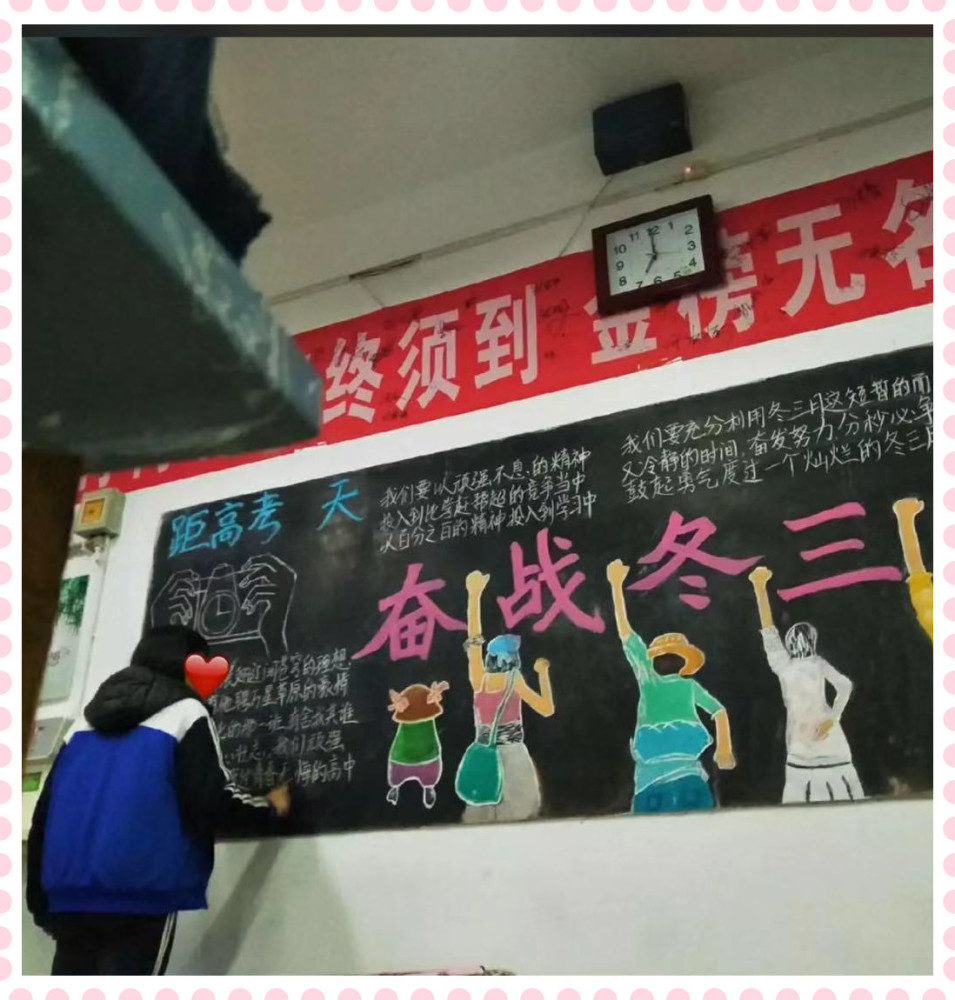 终须到 金榜无名
距高考 天
我们要以顽强不息的精神
投入到比学赶帮超的竞争当中
以百分之百的精神投入到学习中
我们要充分利用冬三月这短暂的而
又冷静的时间,奋发努力,分秒必争
鼓起勇气,度过一个灿烂的冬三月
奋战冬三
的理想
草原的豪情
我们顽强
悔的高中
11 12 1
10 2
9 3
8 4
7 6 5